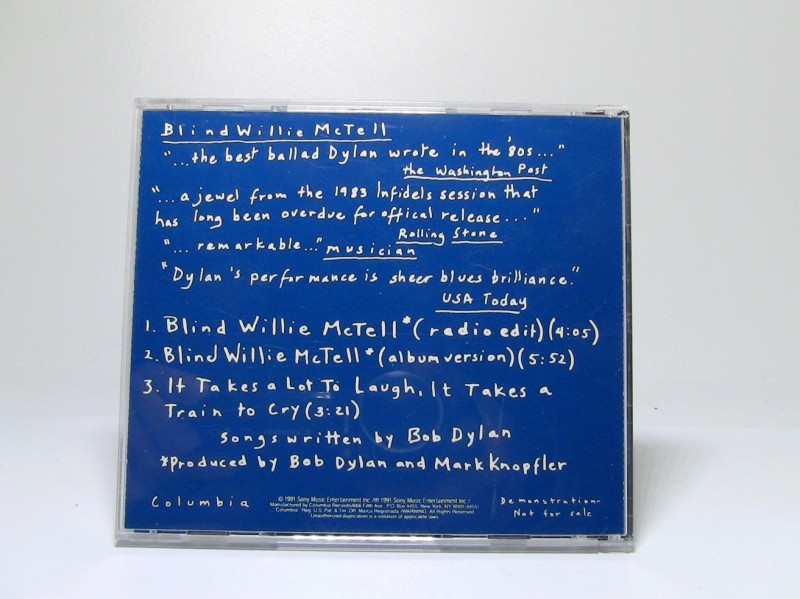 Blind Willie McTell
"...the best ballad Dylan wrote in the '80s..."
the Washington Post
"...a jewel from the 1983 Infidels session that
has long been overdue for offical release..."
Rolling Stone
"...remarkable..." musician
"Dylan's performance is sheer blues brilliance."
USA Today
1. Blind Willie McTell* (radio edit) (4:05)
2. Blind Willie McTell* (album version) (5:52)
3. It Takes a Lot To Laugh, It Takes a
Train to Cry (3:21)
songs written by Bob Dylan
*Produced by Bob Dylan and Mark Knopfler
Columbia
© 1991 Sony Music Entertainment Inc. / ℗ 1991 Sony Music Entertainment Inc. /
Manufactured by Columbia Records/666 Fifth Ave., P.O. Box 4455, New York, NY 10101-4455/
"Columbia" Reg. U.S. Pat. & Tm. Off. Marca Registrada./WARNING: All Rights Reserved.
Unauthorized duplication is a violation of applicable laws.
Demonstration-
Not for sale